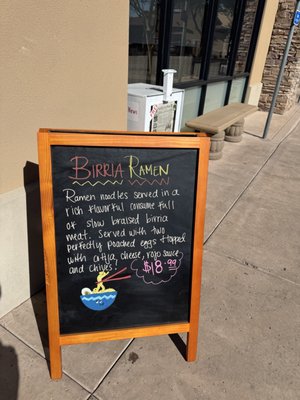 News
BIRRIA RAMEN
Ramen noodles served in a
rich flavorful consume full
of slow braised birria
meat. Served with two
perfectly poached eggs topped
with cotija, cheese, rojo sauce
and chives.
$18.99